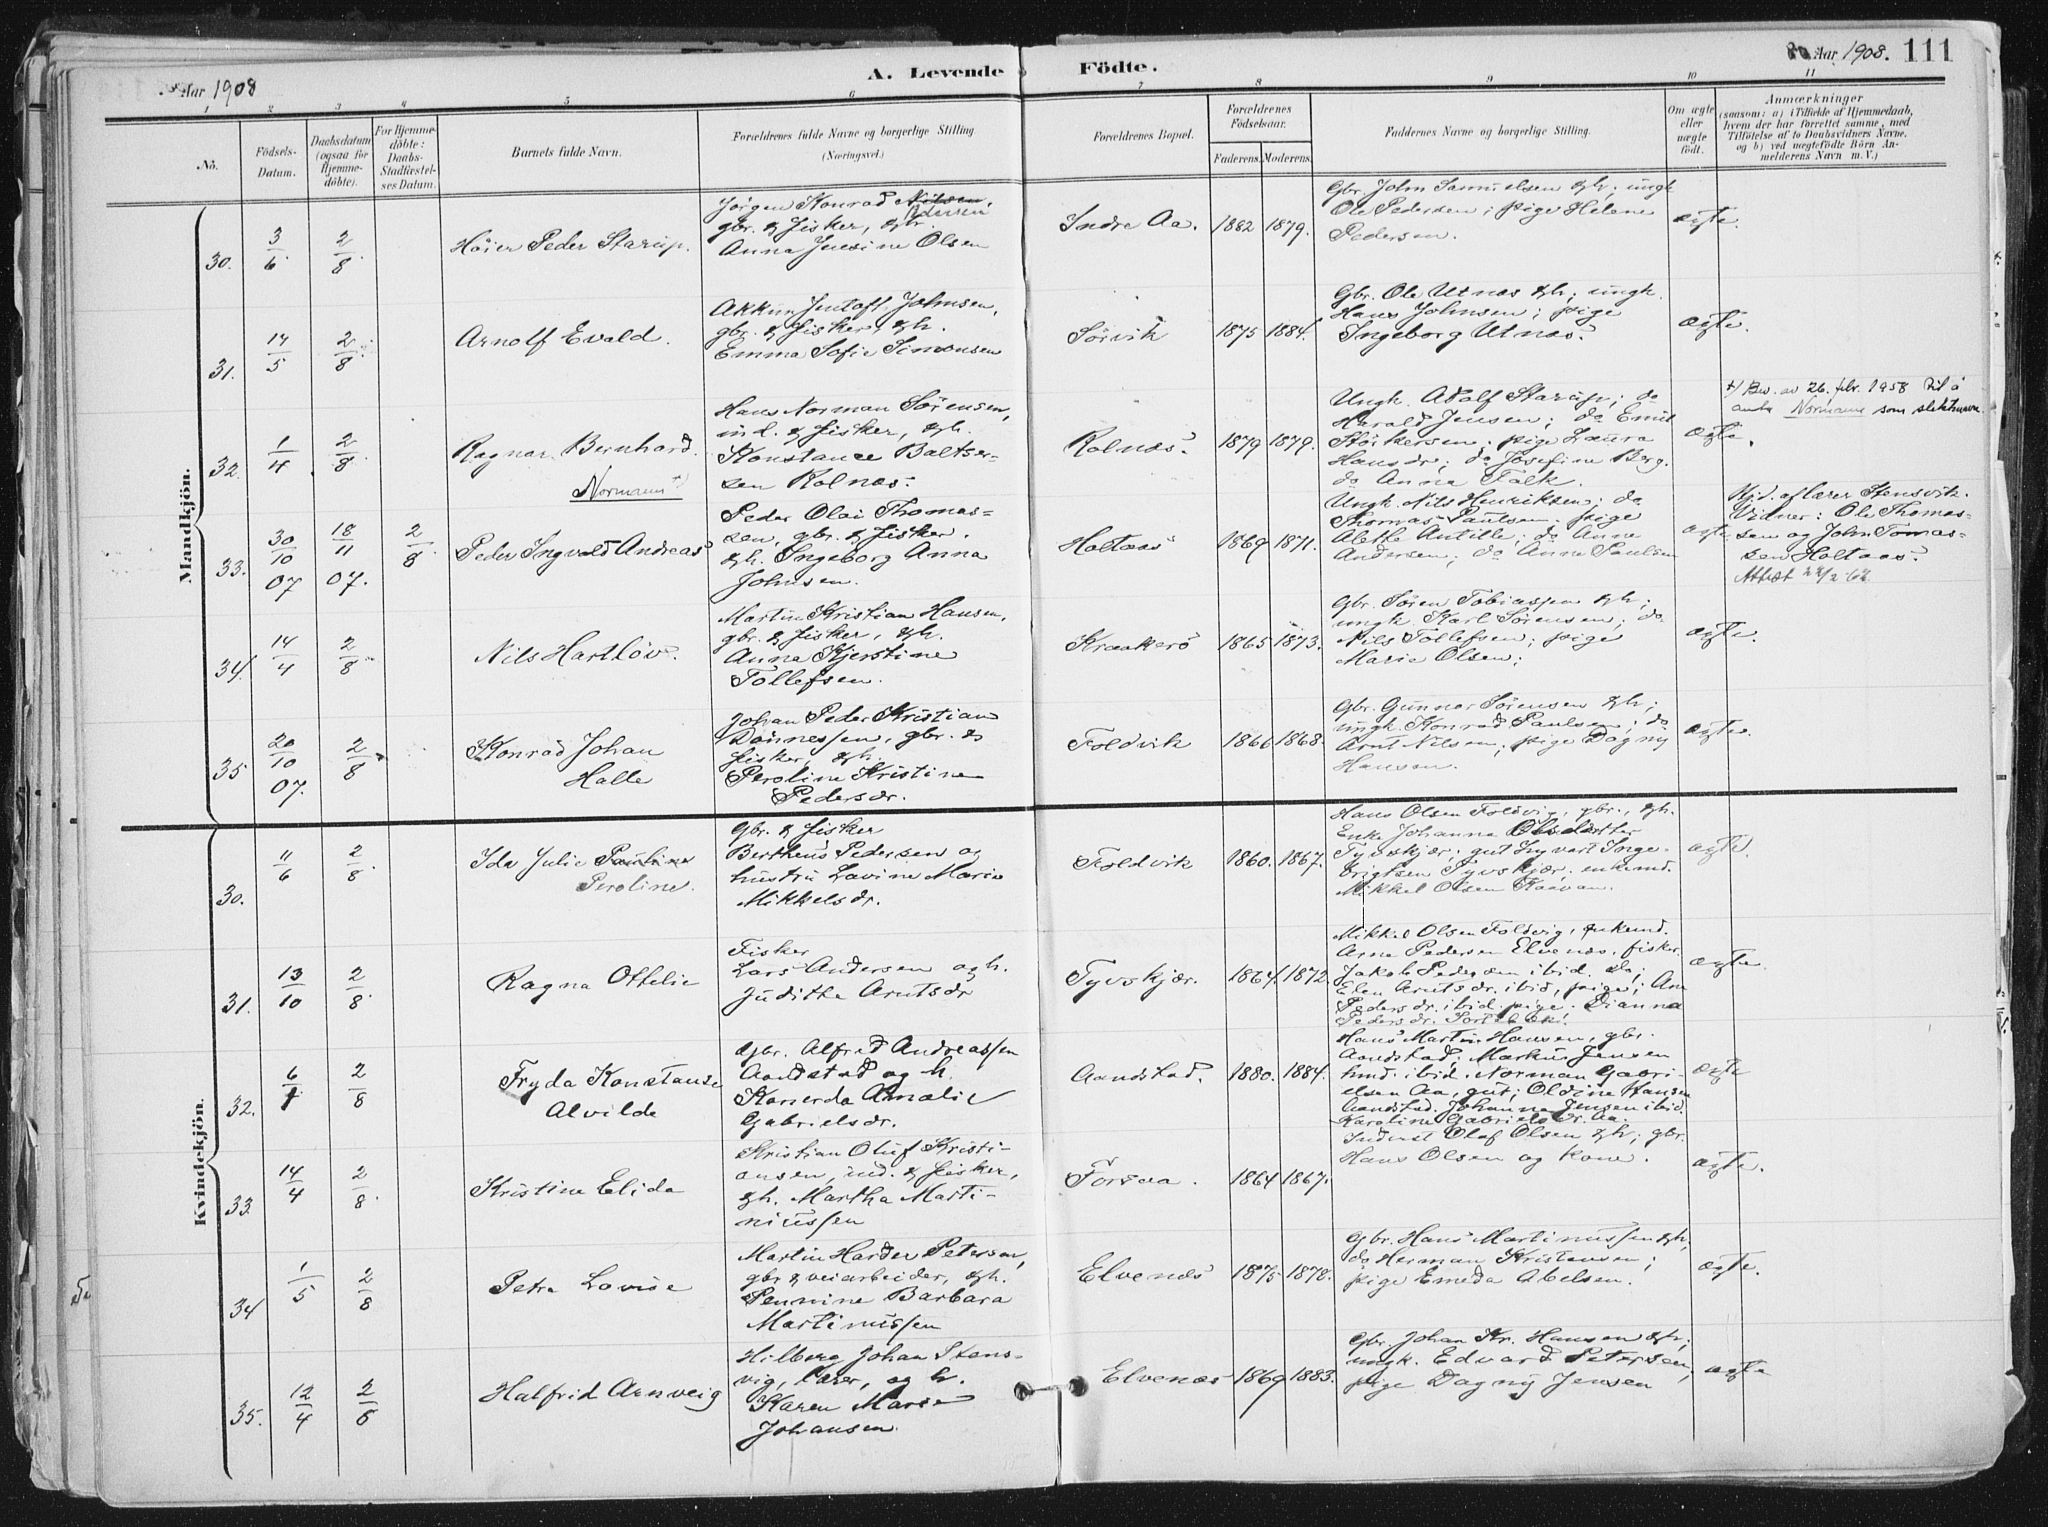 Aar 1908
A. Levende Födte.
Aar 1908. 111
1 2 3 4 5 6 7 8 9 10 11
No.
Födsels-
Datum.
Daabsdatum
(ogsaa for
Hjemme-
döbte).
For Hjemme-
döbte:
Daabs-
Stadfæstel-
ses Datum.
Barnets fulde Navn.
Forældrenes fulde Navne og borgerlige Stilling.
(Næringsvei.)
Forældrenes Bopæl.
Forældrenes
Födselsaar.
Faderens. Moderens.
Faddernes Navne og borgerlige Stilling.
Om ægte
eller
uægte
födt.
Anmærkninger
(saasom: a) i Tilfælde af Hjemmedaab,
hvem der har forrettet samme, med
Tilföielse af to Daabsvidners Navne.
og b) ved uægtefödte Börn An-
melderens Navn m. V.)
Mandkjön.
30. 3/6 2/8 Höier Peder Starup.
Jörgen Konrad Nilsen,
gbr. & fisker, & h.
Anna Jensine Olsen
Indre Aa. 1882 1879.
Gbr. John Samuelsen & h; ungk
Ole Pedersen; pige Helene
Pedersen.
ægte.
31. 14/5 2/8 Arnolf Evald.
Johnsen,
gbr. & fisker, & h.
Emma Sofie Simonsen
Sörvik 1875 1884.
Gbr. Ole Utnæs & h; ungk.
Hans Johnsen; pige
Ingeborg Utnæs.
ægte.
32. 1/4 2/8 Ragnar Bernhard.
Normann +)
Hans Norman Sörensen,
ind. & fisker, & h.
Konstance Baltser-
sen Rolnæs.
Rolnæs. 1879 1879.
Ungk. Adolf Starup; do
Harald Jensen; do Emil
Störkersen; pige Laura
Hansdr; do Josefine Berg.
do Anna Falk.
ægte.
+) Bev. av 26. febr. 1958 til å
anta Normann som slektsnavn.
33. 30/10 07 18/11 07. 2/8 Peder Ingvald Andreas
Peder Olai Thomas-
sen, gbr. & fisker.
& h. Ingeborg Anna
Johnsen.
Holtaas 1869 1871.
Ungk. Nils Henriksen; do
Thomas Paulsen; pige
Alethe Antille; do Anne
Andersen; do Anna Paulsen
ægte
Hjd. af lærer Stensvik.
Vidner: Ole Thomas-
sen og John Tomas-
sen Holtaas.
Attest 22/2-62.
34. 14/4 2/8 Nils Hartlöv.
Martin Kristian Hansen,
gbr. & fisker, & h.
Anna Kjerstine
Tollefsen.
Kraakerö 1865 1873.
Gbr. Sören Tobiassen & h;
ungk. Karl Sörensen; do
Nils Tollefsen; pige
Marie Olsen;
ægte.
35 20/10 07. 2/8 Konrad Johan
Halle
Johan Peder Kristian
Dönnessen, gbr. &
fisker, & h.
Peroline Kristine
Pedersdr.
Foldvik 1866 1868.
Gbr. Gunnar Sörensen & h;
ungk. Konrad Paulsen; do
Arnt Nilsen; pige Dagny
Hansen.
ægte.
Kvindekjön.
30. 11/6 2/8 Ida Julie Pauline
Peroline.
Gbr. & fisker
Bertheus Pedersen og
hustru Lovine Marie
Mikkelsdr.
Foldvik 1860. 1867.
Hans Olsen Foldvig, gbr., & h.
Enke Johanna Olsdatter
Tyvskjær; gut Syvert Inge-
brigtsen Tyvskjær; enkemd.
Mikkel Olsen
ægte.
31. 13/10 2/8 Ragna Ottelie
Fisker
Lars Andersen og h.
Juditha Arntsdr
Tyvskjær. 1864. 1872.
Mikkel Olsen Foldvig, enkemd.
Arne Pedersen Elvenæs, fisker
Jakob Pedersen ibid. do;
Elen Arntsdr. ibid, pige; An
Pedersdr. ibid. pige; Dianna
Pedersdr.
ægte.
32. 6/1 2/8 Fryda Konstanse
Alvilda
Gbr. Alfred Andreassen
Aandstad og h.
Kanerda Amalie
Gabrielsdr.
Aandstad. 1880. 1884.
Hans Martin Hansen, gbr.
Aandstad; Markus Jensen
ibid. Norman Gabri-
elsen Aa, gut; Oldine Hansen
Aandstad. Johanna Jensen ibid.
Karoline Gabrielsdr. Aa.
ægte
33. 14/4 2/8 Kristine Elida
Kristian Oluf Kristi-
ansen, ind. & fisker,
& h. Martha Marti-
niussen
Forsaa. 1864 1867.
Inderst Olaf Olsen & h; gbr.
Hans Olsen og kone.
ægte.
34 1/5 2/8 Petra Lovise
Martin Harder Peterson,
gbr & veiarbeider, & h.
Pennine Barbara
Martinussen
Elvenæs 1875 1878.
Gbr. Hans Martinussen & h;
do Herman Kristensen;
pige Emeda Abelsen.
ægte.
35. 12/4 2/8 Halfrid Arnveig
Hilberg Johan Stens-
vig, lærer, og h.
Karen Marie
Johansen
Elvenæs 1869 1883.
Gbr. Johan Kr. Hansen & h;
ungk. Edvard Petersen,
pige Dagny Jensen
ægte